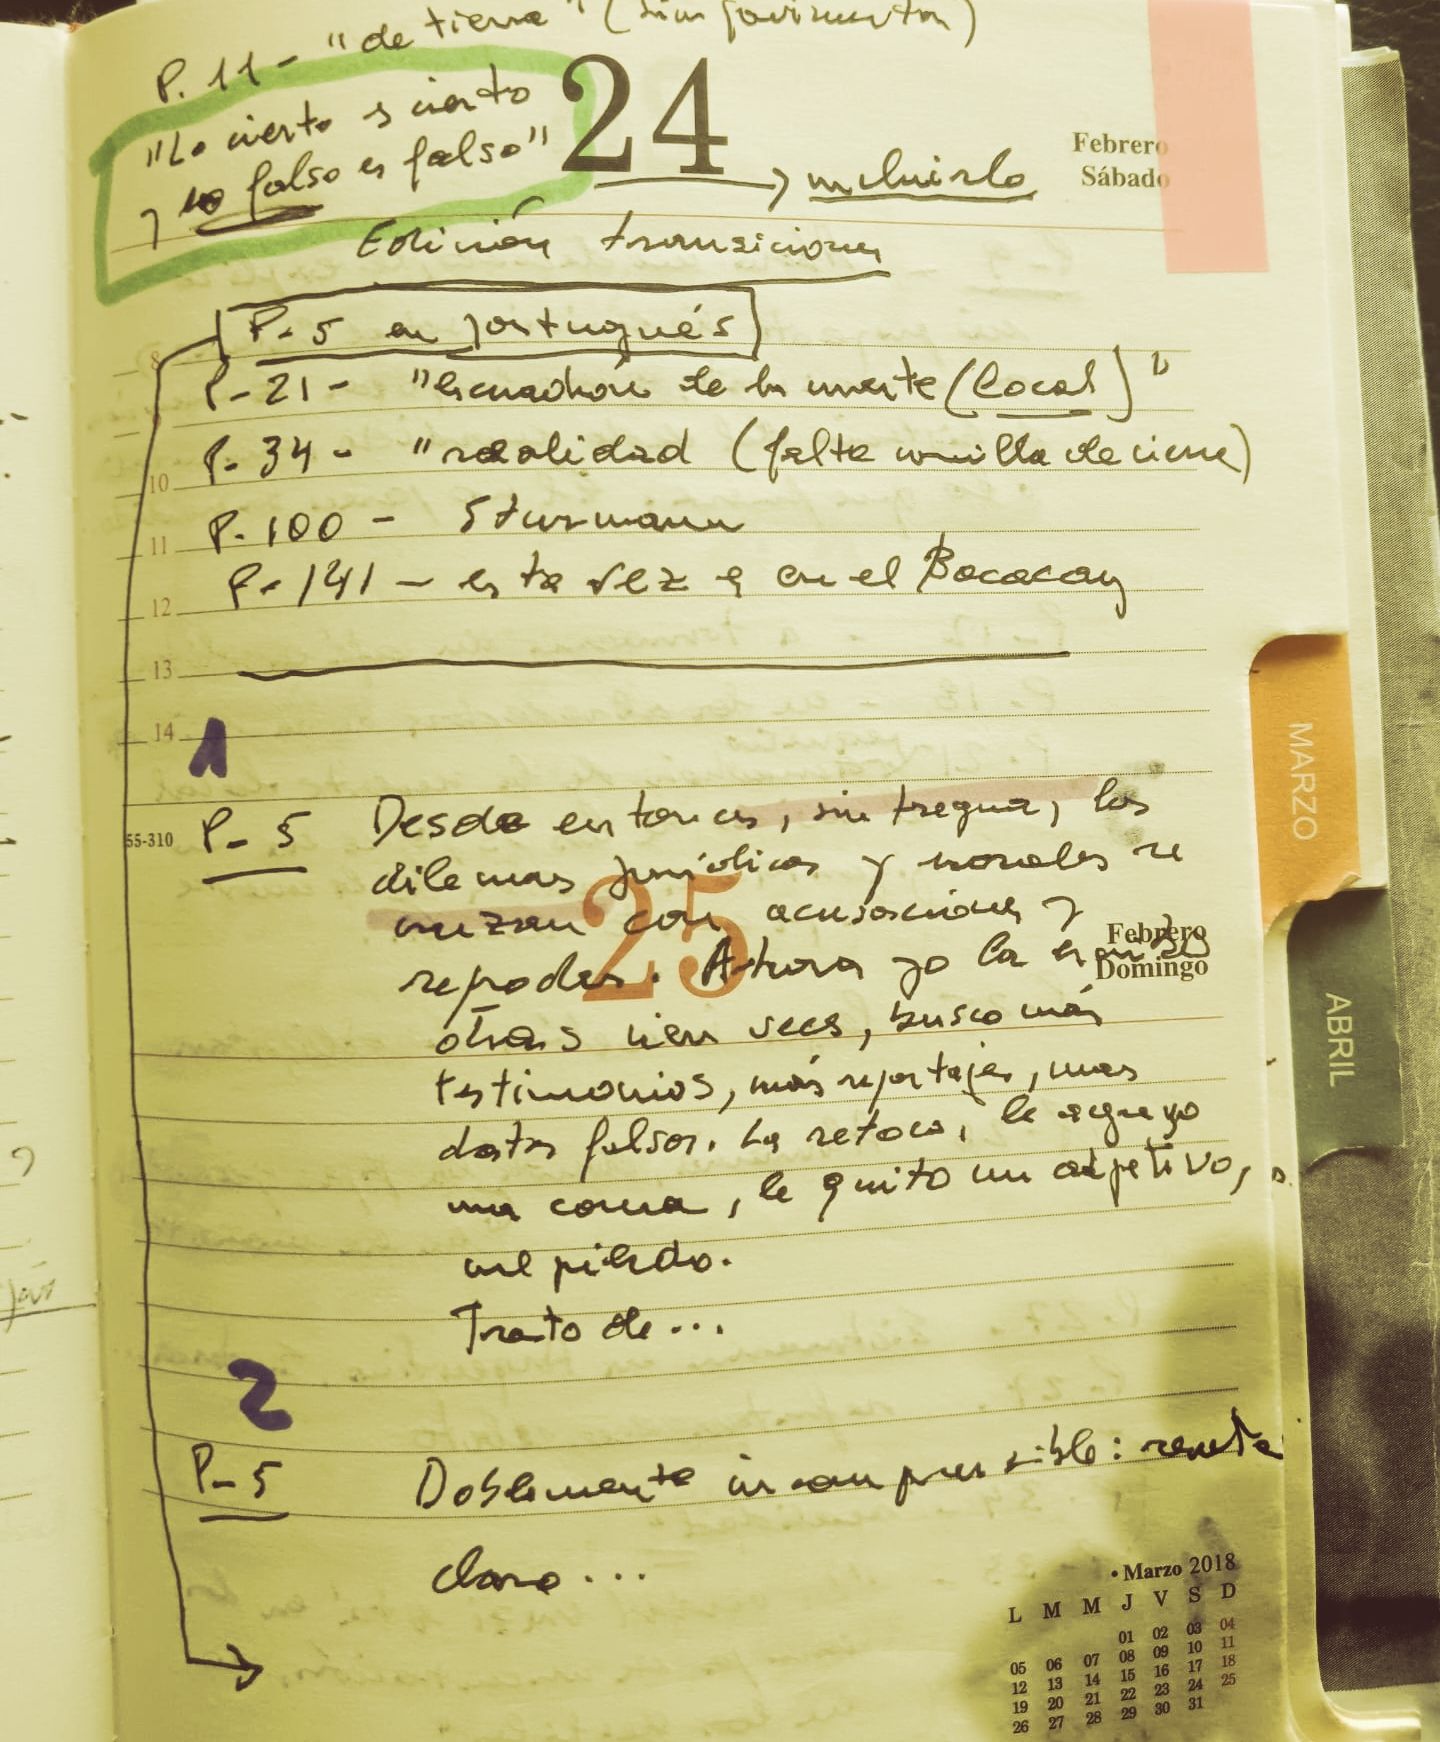 P. 11 - "de tierra" (sin pavimentar)
"Lo cierto es cierto
y lo falso es falso"
24
Febrero
Sábado
incluirlo
Edición transiciones
P-5 en portugués
8
P-21- "escuadrón de la muerte (local)"
P- 34 - "realidad (falta comilla de cierre)
10
P. 100 - Sturmann
11
P- 141 - esta vez es en el Bacacay
12
13
14
1
55-310
P- 5 Desde entonces, sin tregua, los
dilemas jurídicos y morales se
cruzan con acusaciones y
25
Febrero
Domingo
repodes. Ahora yo la
otras cien veces, busco más
testimonios, más reportajes, mas
datos falsos. La retoco, le agrego
una coma, le quito un adjetivo,
me pierdo.
Trato de...
2
P-5 Doblemente incomprensible: resulta
claro...
• Marzo 2018
L M M J V S D
01 02 03 04
05 06 07 08 09 10 11
12 13 14 15 16 17 18
19 20 21 22 23 24 25
26 27 28 29 30 31
MARZO
ABRIL